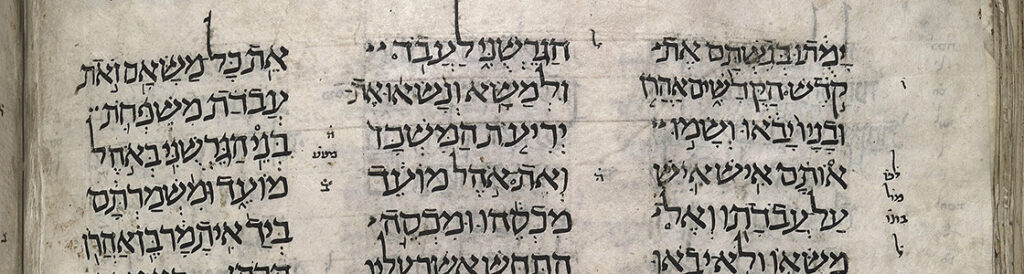 ימתו בגשתם את
קדש הקדשים אהרן
ובניו יבאו ושמו
אותם איש איש
על עבדתו ואל
משאו ולא יבאו
הגרשני לעבד
ולמשא ונשאו את
יריעת המשכן
ואת אהל מועד
מכסהו ומכסה
התחש אשר עליו
את כל משאם ואת
עבדת משפחת
בני הגרשני באהל
מועד ומשמרתם
ביד איתמר בן אהרן